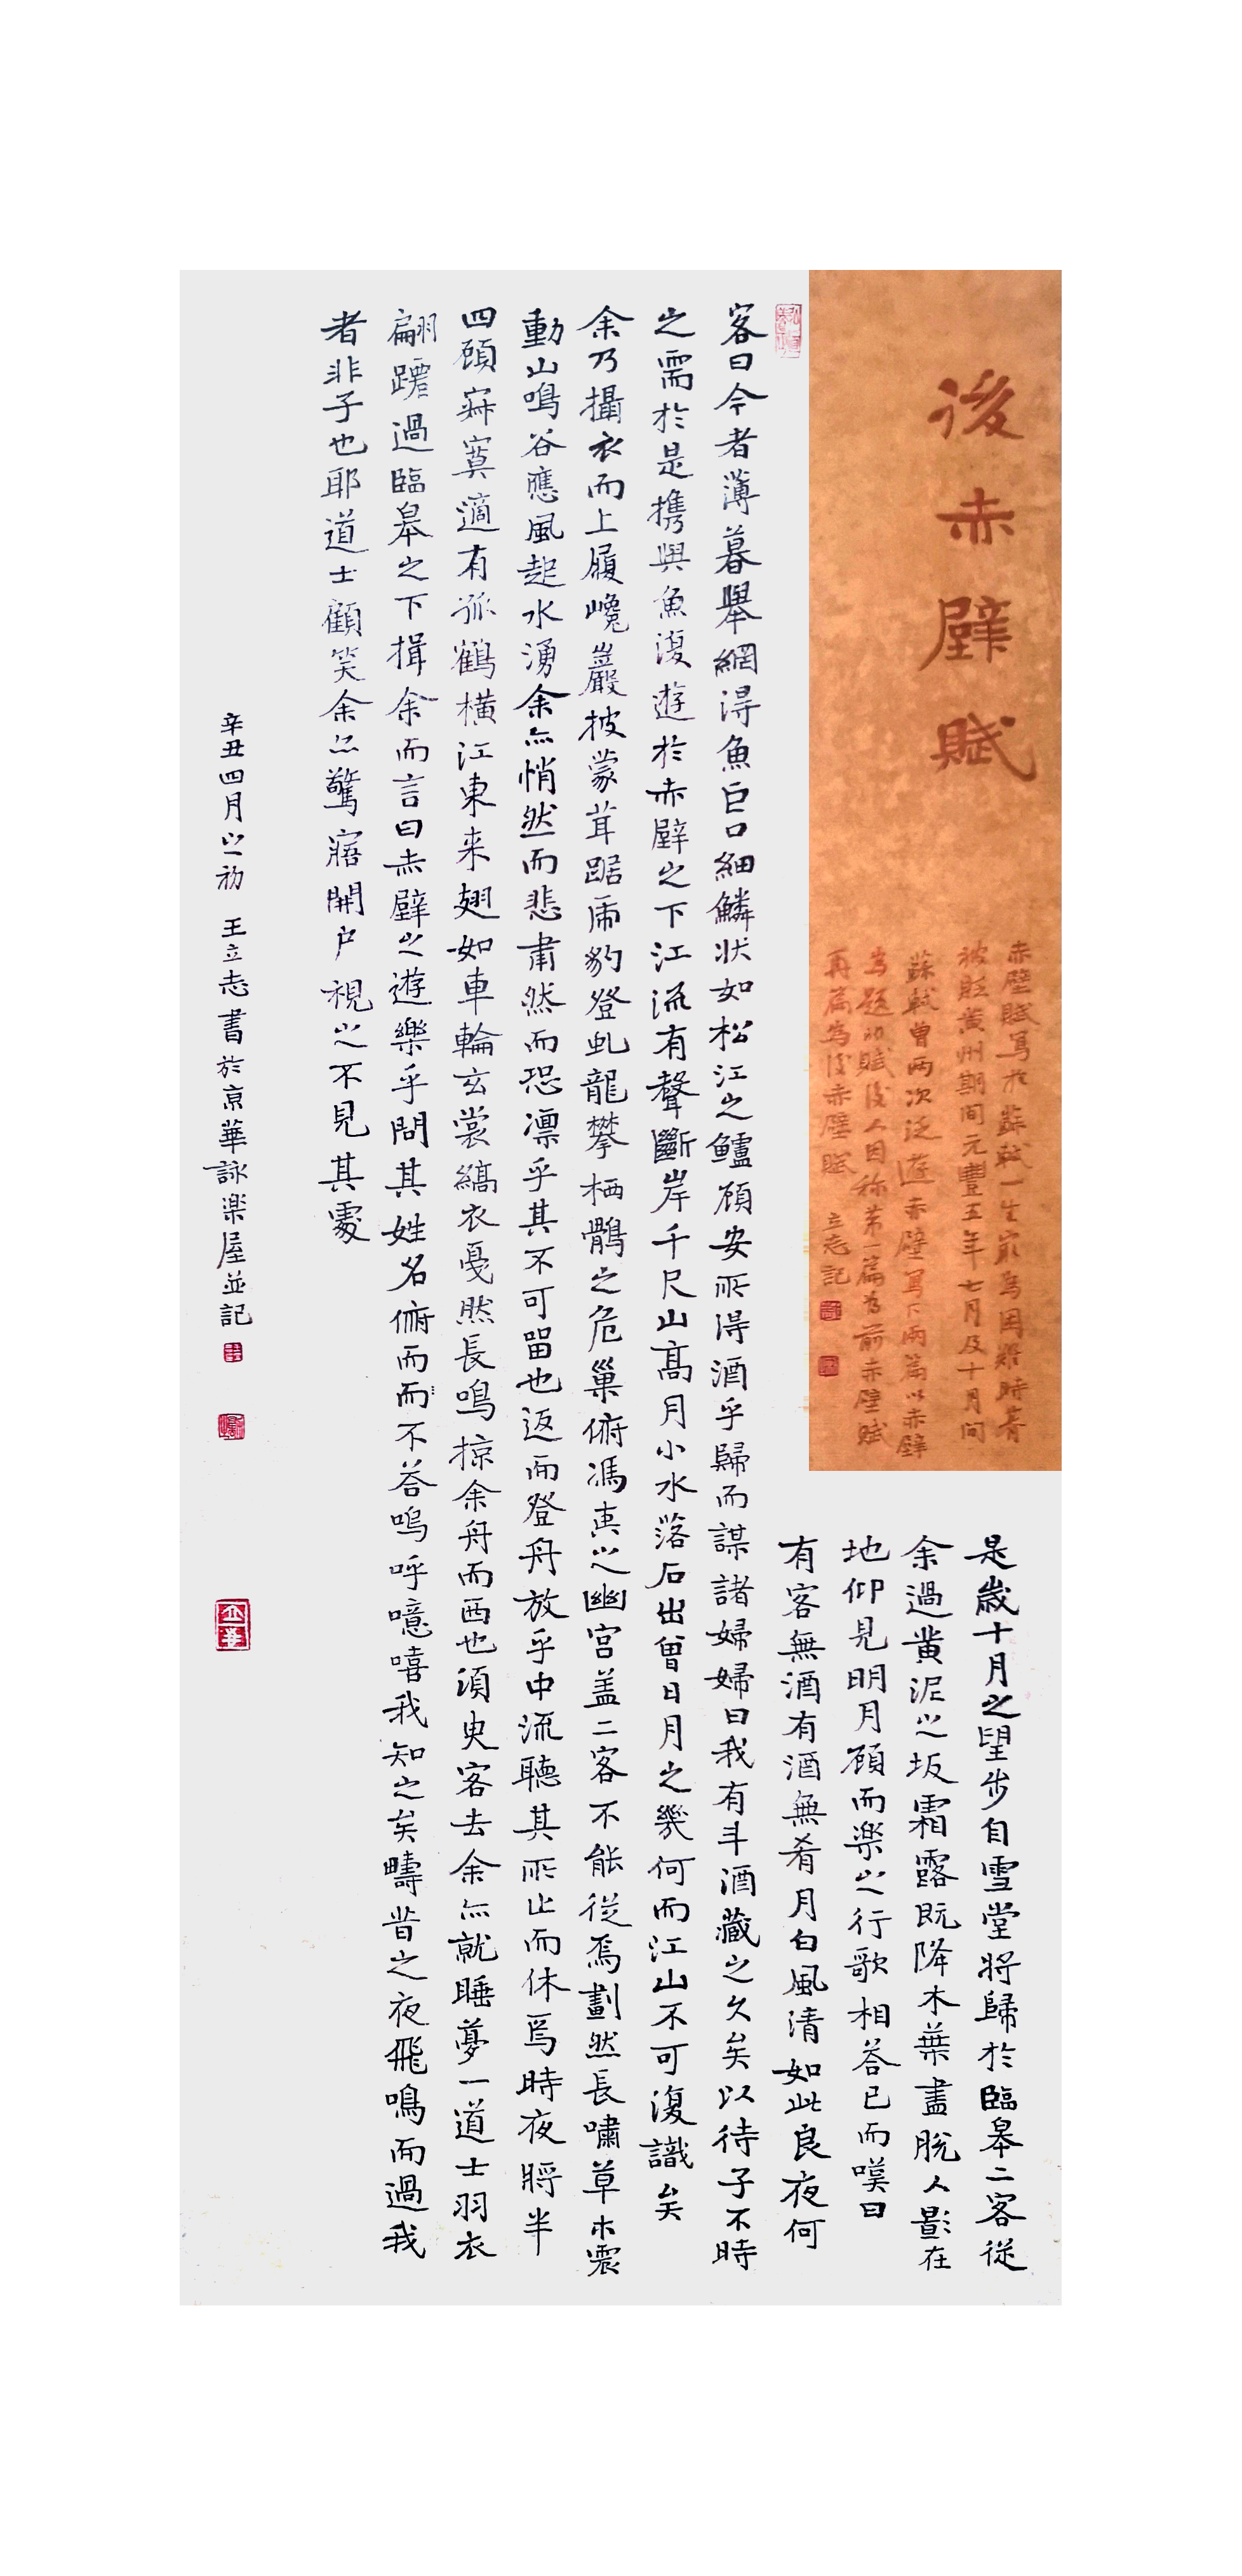 後赤壁賦
赤壁賦寫於蘇軾一生最為困難時
被貶黃州期間元豐五年七月及十月間
蘇軾曾兩次泛遊赤壁寫下兩篇以赤壁
為題的賦後人因称第一篇為前赤壁賦
再篇為後赤壁賦 立志記
是歲十月之望步自雪堂將歸於臨皋二客從
余過黃泥之坂霜露既降木葉盡脫人影在
地仰見明月顧而楽之行歌相答已而嘆曰
有客無酒有酒無肴月白風清如此良夜何
客曰今者薄暮舉網得魚巨口細鱗狀如松江之鱸顧安所得酒乎歸而謀諸婦婦曰我有斗酒藏之久矣以待子不時
之需於是携與魚復遊於赤壁之下江流有聲斷岸千尺山髙月小水落石出曾日月之幾何而江山不可復識矣
余乃攝衣而上履巉巖披蒙茸踞虎豹登虬龍攀栖鶻之危巢俯馮夷之幽宫盖二客不能從焉劃然長嘯草木震
動山鳴谷應風起水湧余亦悄然而悲肅然而恐凛乎其不可留也返而登舟放乎中流聽其所止而休焉時夜將半
四顧寂寞適有孤鶴橫江東来翅如車輪玄裳縞衣戛然長鳴掠余舟而西也須臾客去余亦就睡夢一道士羽衣
翩躚過臨皋之下揖余而言曰赤壁之遊樂乎問其姓名俯而而不荅嗚呼噫嘻我知之矣疇昔之夜飛鳴而過我
者非子也耶道士顧笑余亦驚寤開户視之不見其處
辛丑四月之初 王立志書於京華詠楽屋並記